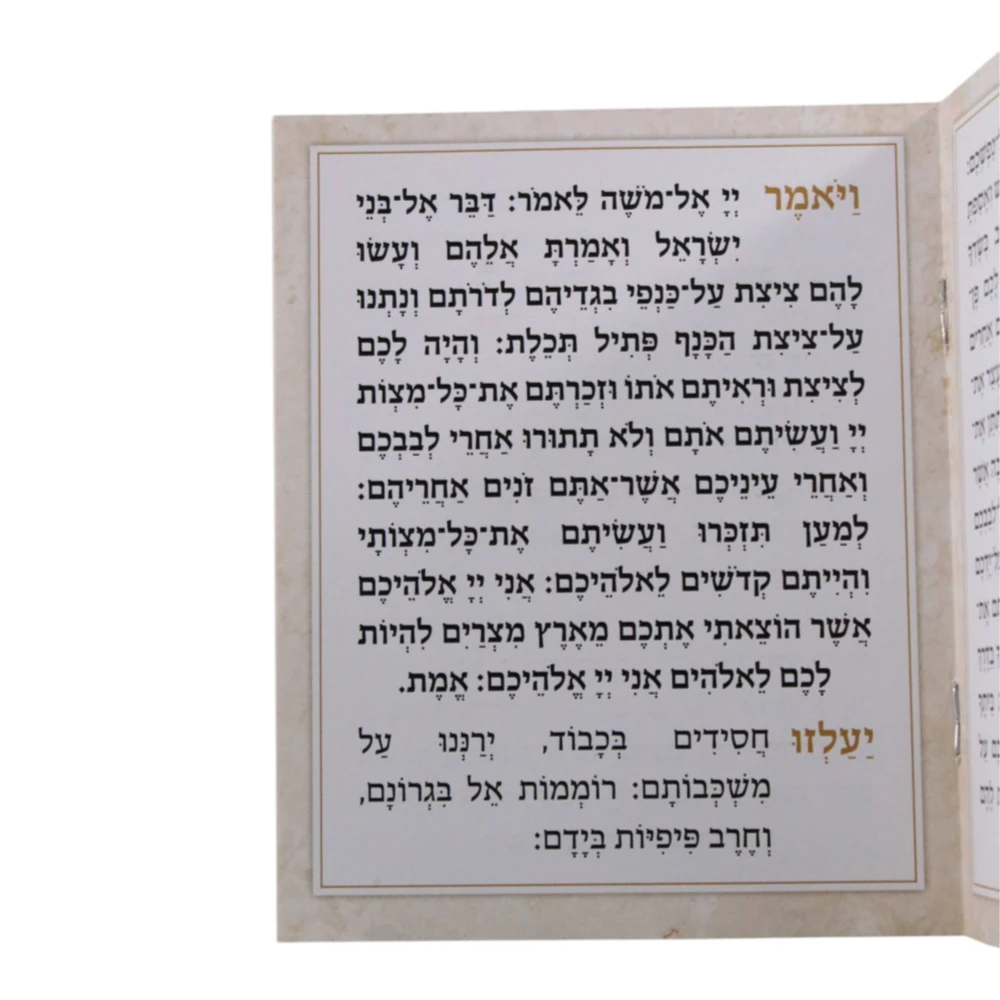 וַיֹּאמֶר יְיָ אֶל־מֹשֶׁה לֵּאמֹר: דַּבֵּר אֶל־בְּנֵי
יִשְׂרָאֵל וְאָמַרְתָּ אֲלֵהֶם וְעָשׂוּ
לָהֶם צִיצִת עַל־כַּנְפֵי בִגְדֵיהֶם לְדֹרֹתָם וְנָתְנוּ
עַל־צִיצִת הַכָּנָף פְּתִיל תְּכֵלֶת: וְהָיָה לָכֶם
לְצִיצִת וּרְאִיתֶם אֹתוֹ וּזְכַרְתֶּם אֶת־כָּל־מִצְוֹת
יְיָ וַעֲשִׂיתֶם אֹתָם וְלֹא תָתוּרוּ אַחֲרֵי לְבַבְכֶם
וְאַחֲרֵי עֵינֵיכֶם אֲשֶׁר־אַתֶּם זֹנִים אַחֲרֵיהֶם:
לְמַעַן תִּזְכְּרוּ וַעֲשִׂיתֶם אֶת־כָּל־מִצְוֹתָי
וִהְיִיתֶם קְדֹשִׁים לֵאלֹהֵיכֶם: אֲנִי יְיָ אֱלֹהֵיכֶם
אֲשֶׁר הוֹצֵאתִי אֶתְכֶם מֵאֶרֶץ מִצְרַיִם לִהְיוֹת
לָכֶם לֵאלֹהִים אֲנִי יְיָ אֱלֹהֵיכֶם: אֱמֶת.
יַעַלְזוּ חֲסִידִים בְּכָבוֹד, יְרַנְּנוּ עַל
מִשְׁכְּבוֹתָם: רוֹמְמוֹת אֵל בִּגְרוֹנָם,
וְחֶרֶב פִּיפִיּוֹת בְּיָדָם: